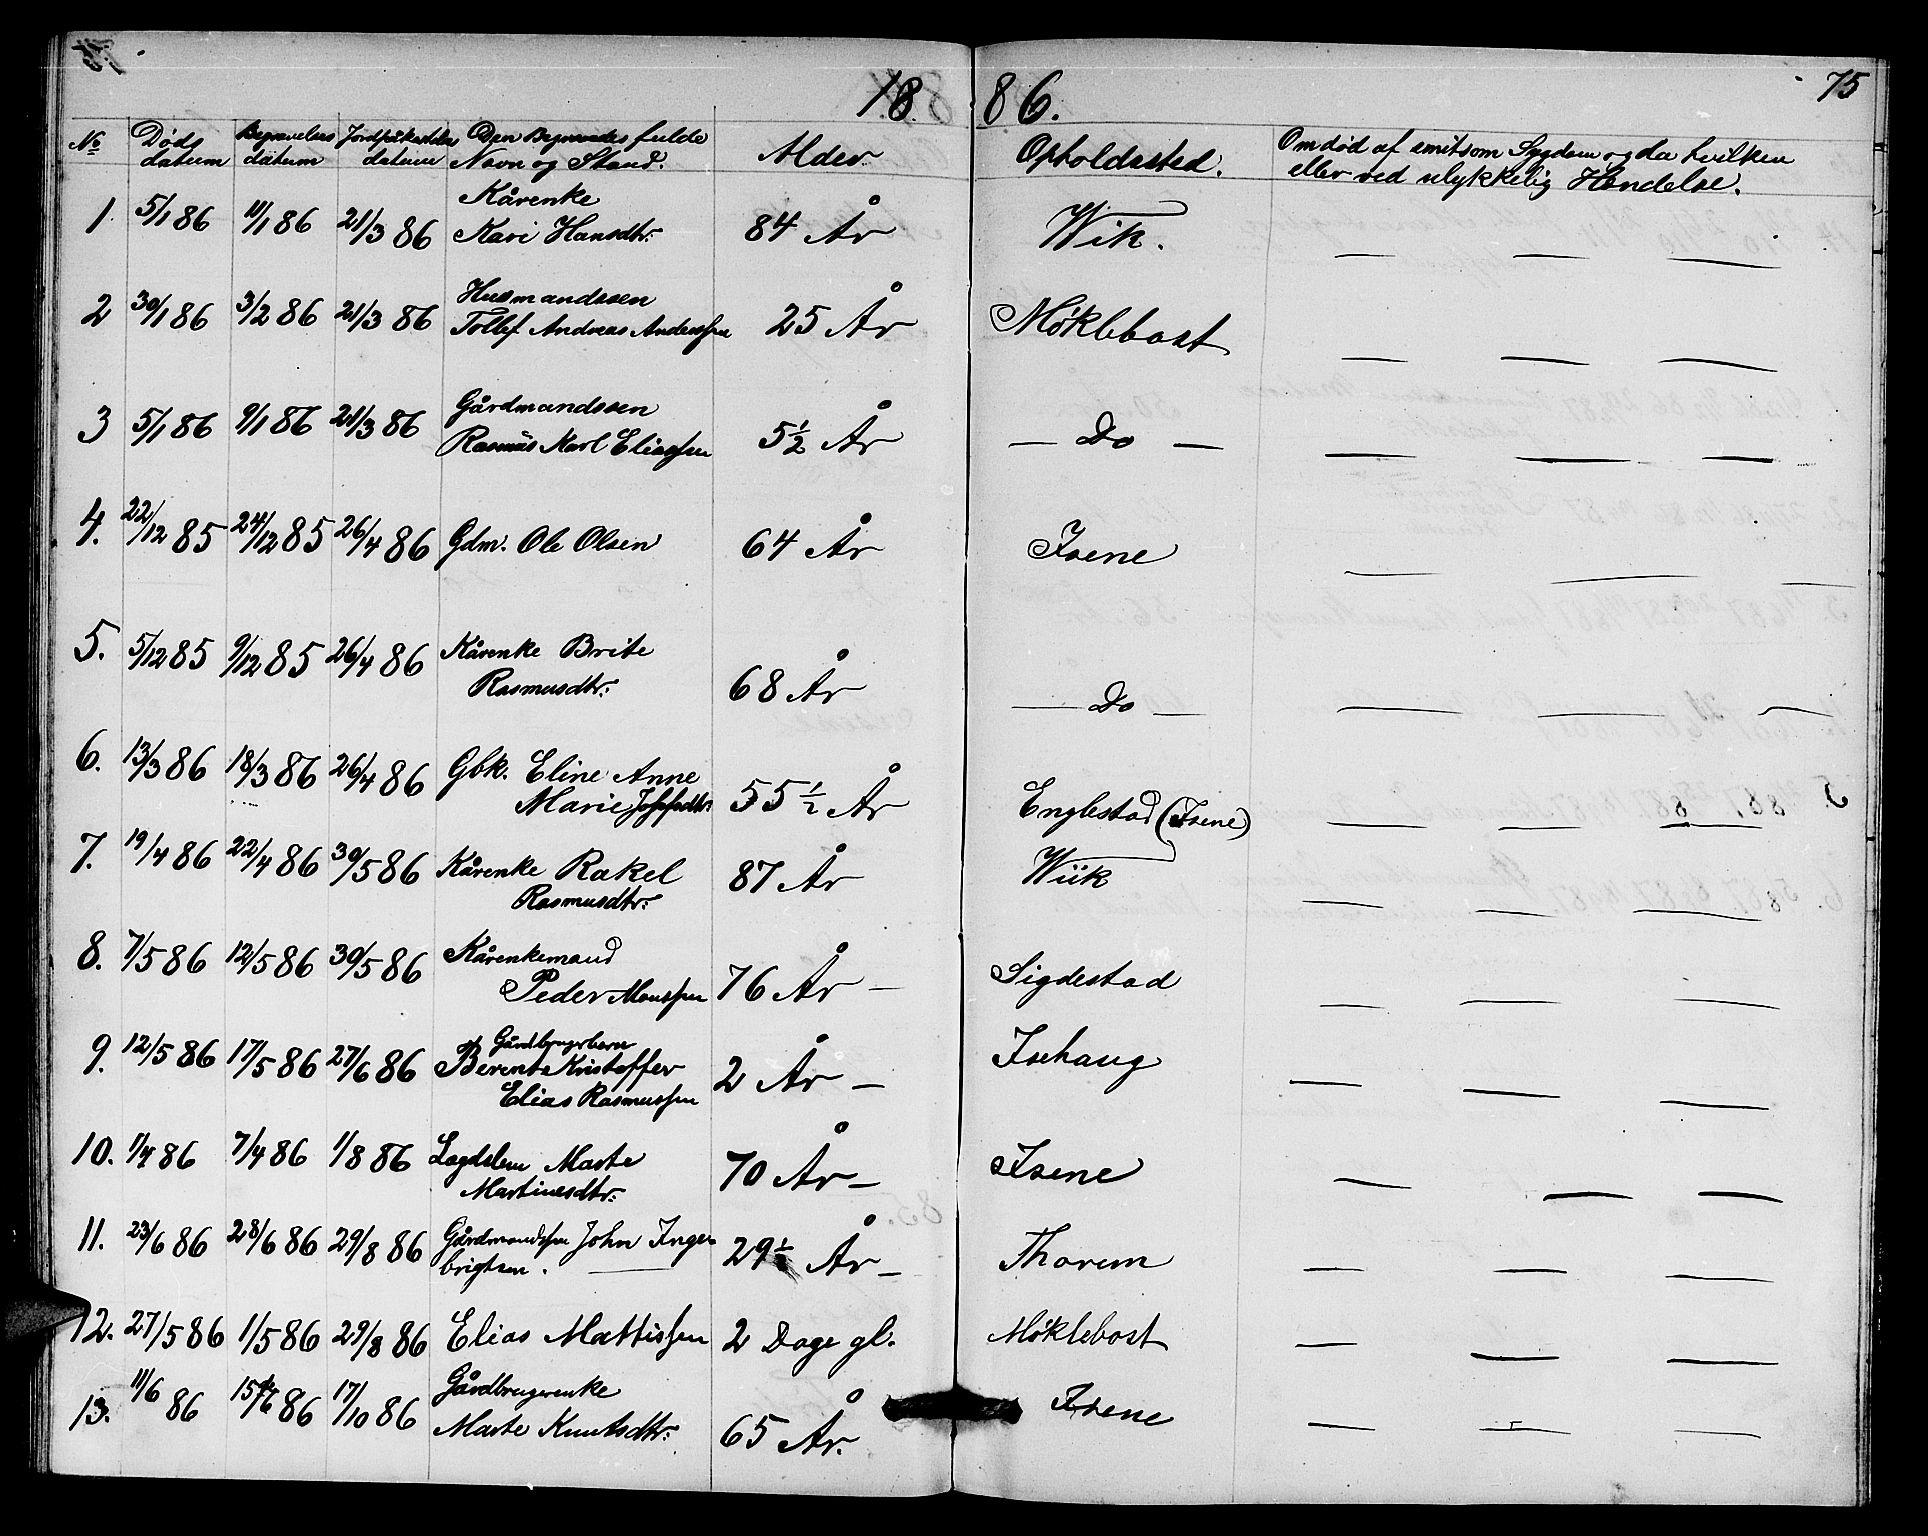 1886.
75
No Døds datum Begravelses datum Jordpåkastelses datum Den Begravedes fulde Navn og Stand. Alder. Opholdssted. Om død af smitsom Sygdom og da hvilken eller ved ulykkelig Hændelse.
1 5/1 86 11/1 86 21/3 86 Kårenke Kari Hansdtr: 84 År Wik. — — —
2 30/1 86 3/2 86 21/3 86 Husmandssøn Tollef Andreas Anderssen 25 År Møklebost — — —
3 5/1 86 9/1 86 21/3 86 Gårdmandssøn Rasmus Karl Eliassen 5 1/2 År — Do — — — —
4. 22/12 85 24/12 85 26/4 86 Gdm. Ole Olsen 64 År Isene — — —
5. 5/12 85 9/12 85 26/4 86 Kårenke Brite Rasmusdtr: 68 År — Do — — — —
6. 13/3 86 18/3 86 26/4 86 Gbk. Eline Anne Marie Josefsdtr: 55 1/2 År Englestad (Isene) — — —
7. 19/4 86 22/4 86 30/5 86 Kårenke Rakel Rasmusdtr: 87 År Wiik — — —
8. 7/5 86 12/5 86 30/5 86 Kårenkemand Peder Monssen 76 År — Sigdestad — — —
9. 12/5 86 17/5 86 27/6 86 Gårdbrugerbarn Berent Kristoffer Elias Rasmussen 2 År — Isehaug — — —
10. 1/4 86 7/4 86 1/8 86 Lægdslem Marte Martinesdtr: 70 År — Isene — — —
11. 23/6 86 28/6 86 29/8 86 Gårdmandssøn John Ingebrigtsen. — 29 1/2 År — Thorem — — —
12. 27/5 86 1/5 86 29/8 86 Elias Mattissen 2 Dage gl. Møklebost — — —
13. 11/6 86 15/6 86 17/10 86 Gårdbrugerenke Marte Knutsdtr: 65 År. Isene — — —